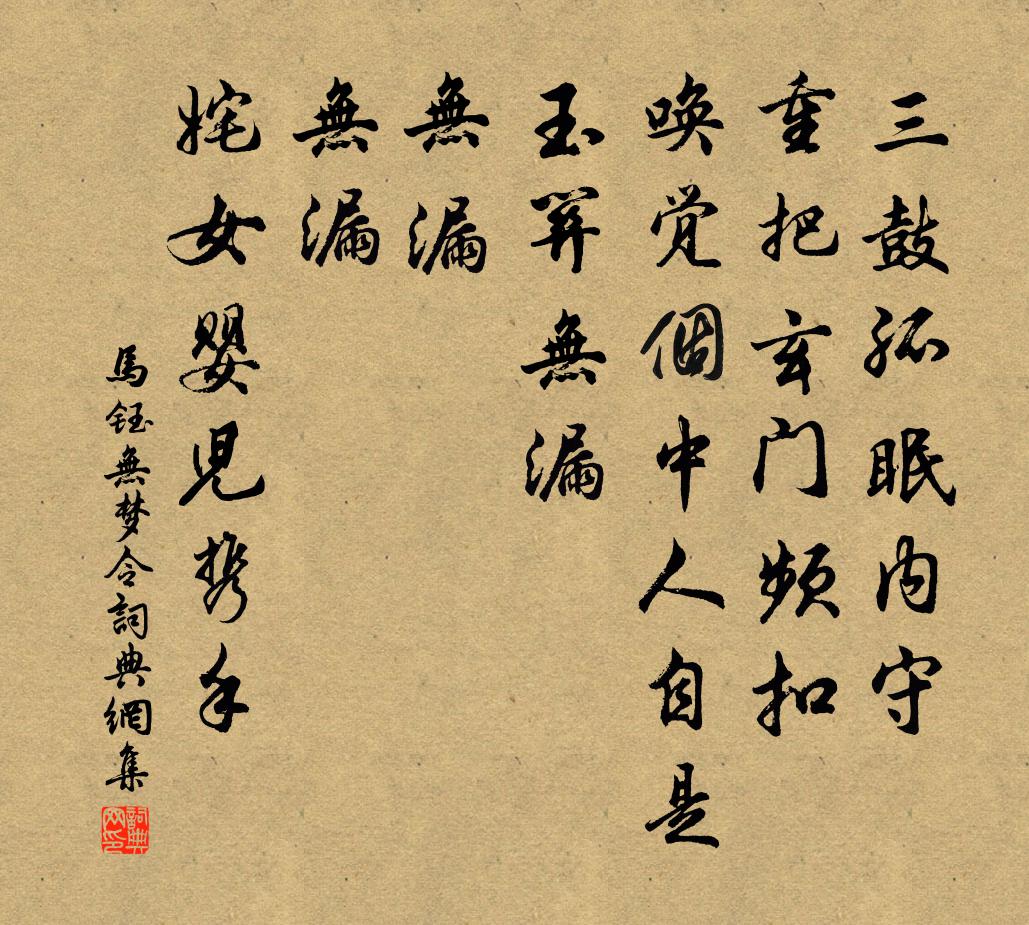 三鼓孤眠内守
重把玄门频扣
唤觉個中人自是
玉笄無漏
無漏
無漏
姹女婴兒携手
馬钰無梦令詞典網集
詞典网印